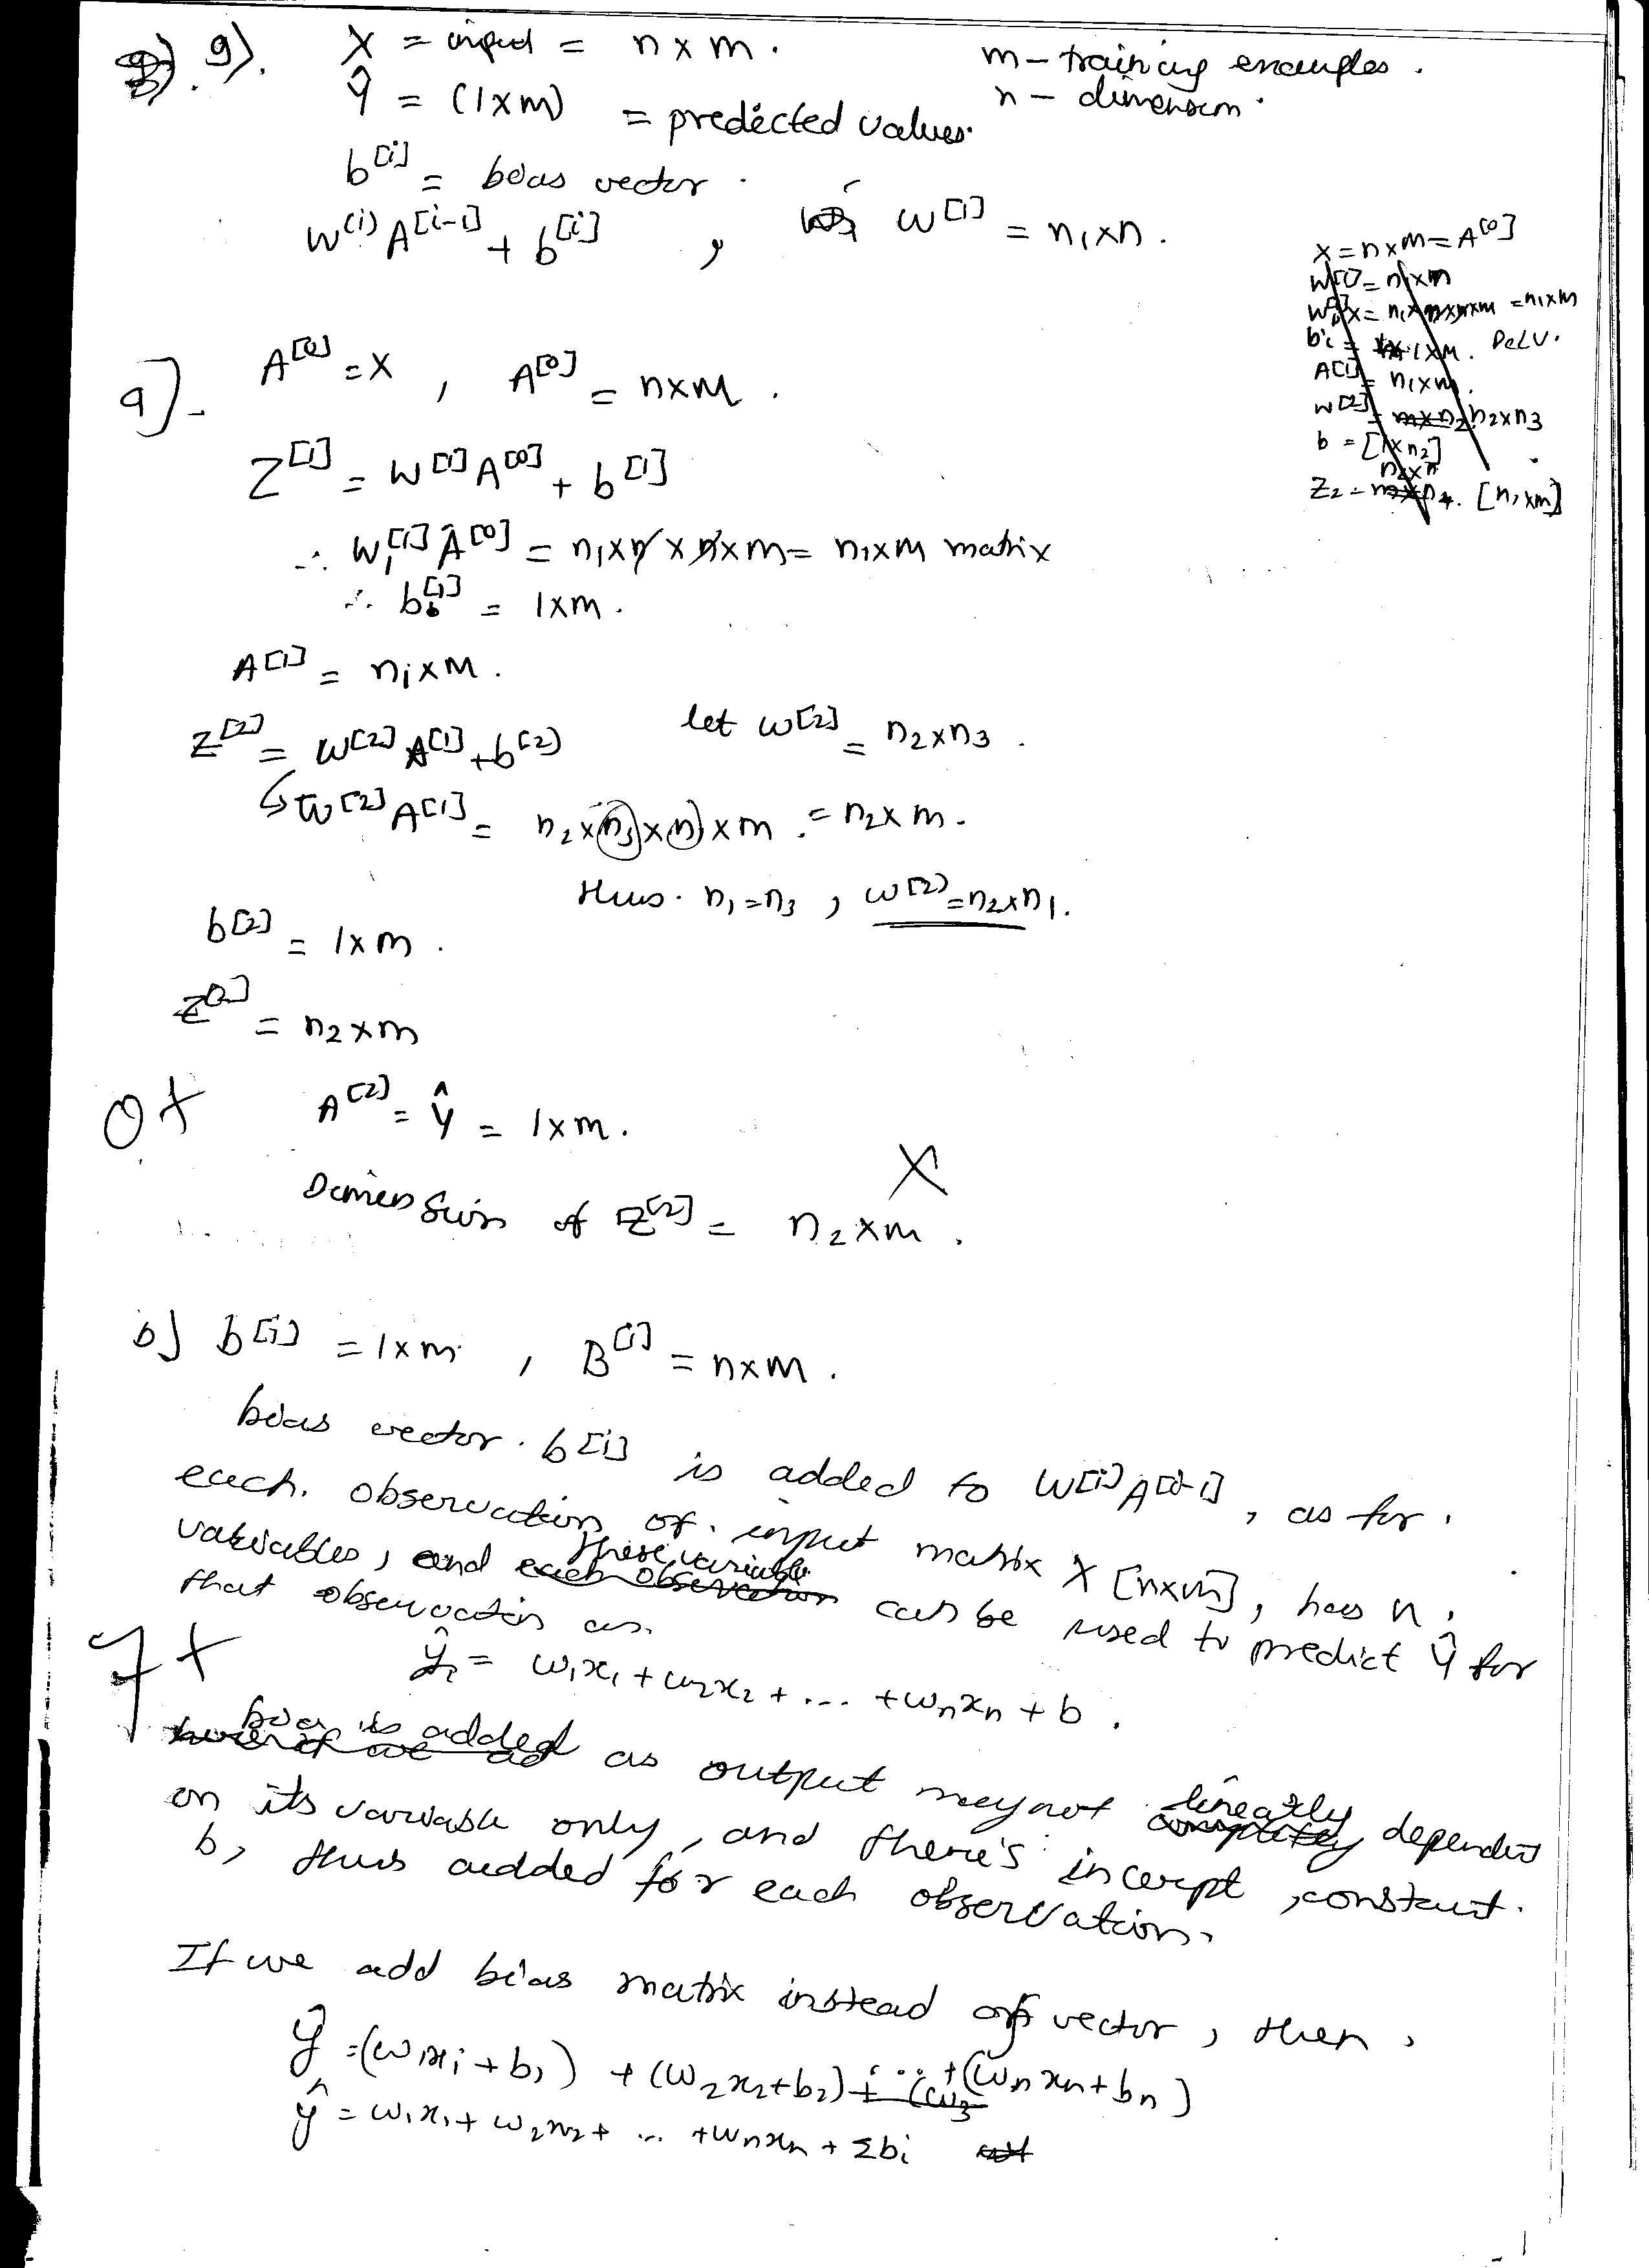 9). X = input = n x m.
m - training examples.
n - dimension.
Ŷ = (1xm) = predected values.
b[i] = bias vector.
W(i) A[i-1] + b[i] , W[1] = n1xn.
X = nxm = A[0]
W[1] = n1xn
W[1]X = n1xnxnxm = n1xm
bi = 1xm. ReLU.
A[1] = n1xm.
W[2] = n2xn3
b = [1xn2]
Z2 = [n2xm]
a]. A[0] = X , A[0] = nxm.
Z[1] = W[1] A[0] + b[1]
∴ W[1] A[0] = n1xn x nxm = n1xm matrix
∴ b[1] = 1xm.
A[1] = n1xm.
Z[2] = W[2] A[1] + b[2]
let W[2] = n2xn3.
↳ W[2] A[1] = n2xn3xn1xm. = n2xm.
thus. n1=n3 , W[2] = n2xn1.
b[2] = 1xm.
Z[2] = n2xm
0+
A[2] = Ŷ = 1xm.
X
Dimension of Z[2] = n2xm.
b] b[i] = 1xm , B[i] = nxm.
bias vector. b[i] is added to W[i] A[i-1] , as for
each. observation of input matrix X [nxm], has n
variables, and these variable can be used to predict Ŷ for
that observation as.
7+
ŷi = w1x1 + w2x2 + ... + wnxn + b.
bias is added as output may not linearly dependent
on its variable only, and there's incerpt , constant.
b, thus added for each observation.
If we add bias matrix instead of vector, then,
ŷ = (w1x1 + b1) + (w2x2 + b2) + ... + (wnxn + bn)
ŷ = w1x1 + w2x2 + ... + wnxn + Σbi